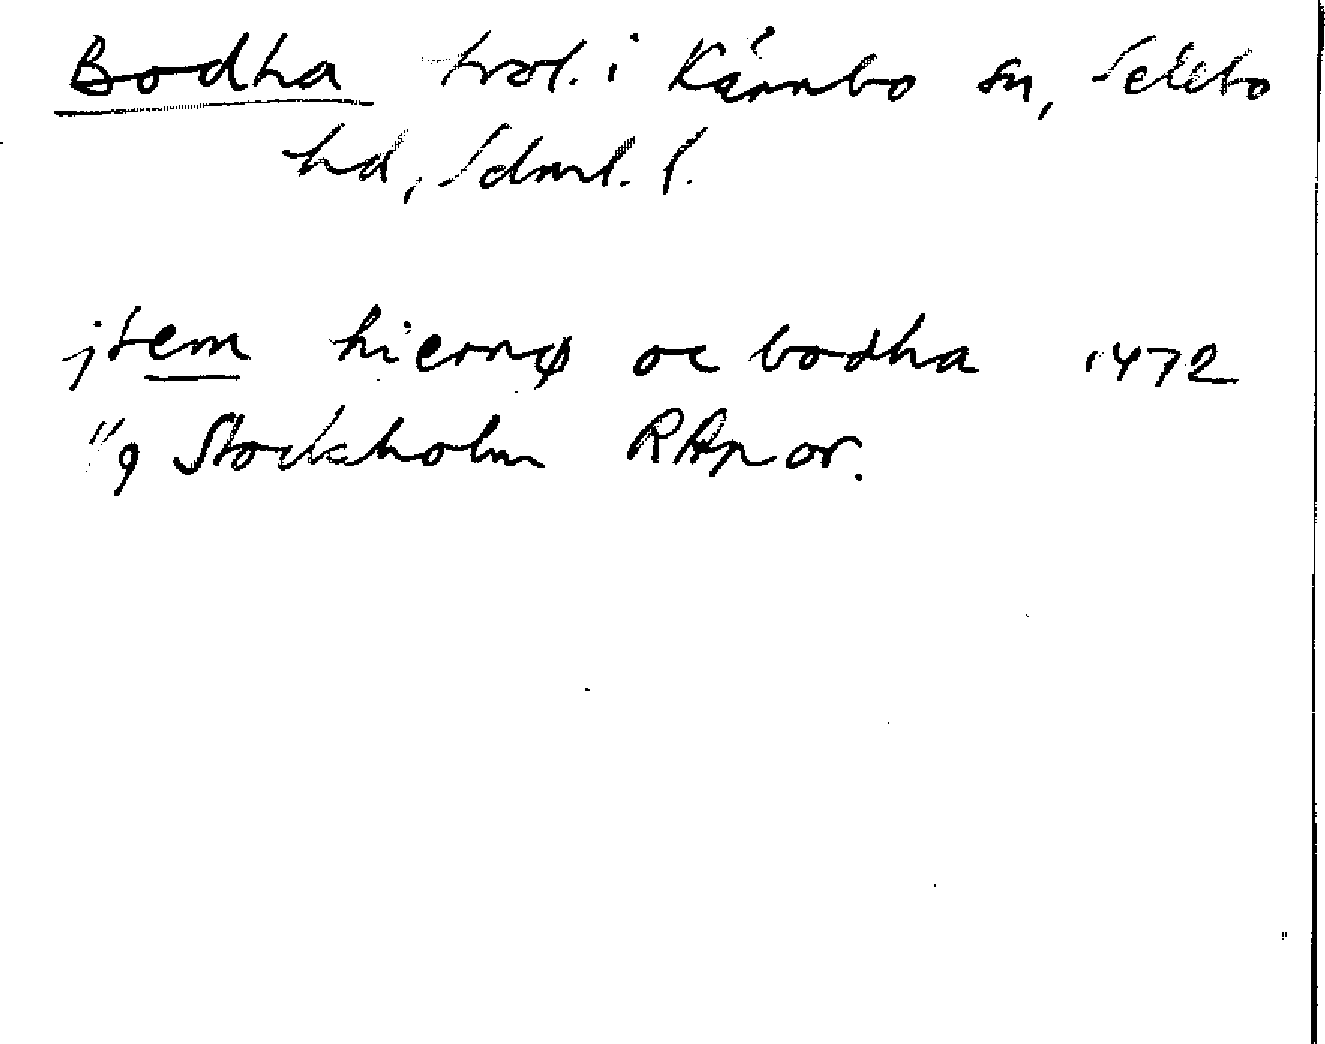 Bodha trol. i Kärnbo sn, Selebo
hd, Sdml. l.
jtem hiernø oc bodha 1472
"/9 Stockholm RApor.